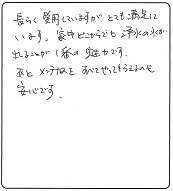 長らく愛用していますが、とても満足して
います。家中どこからでも浄水の水が
出ることが1番の魅力です。
あと メンテナンスを すべてやってもらえるのも
安心です。